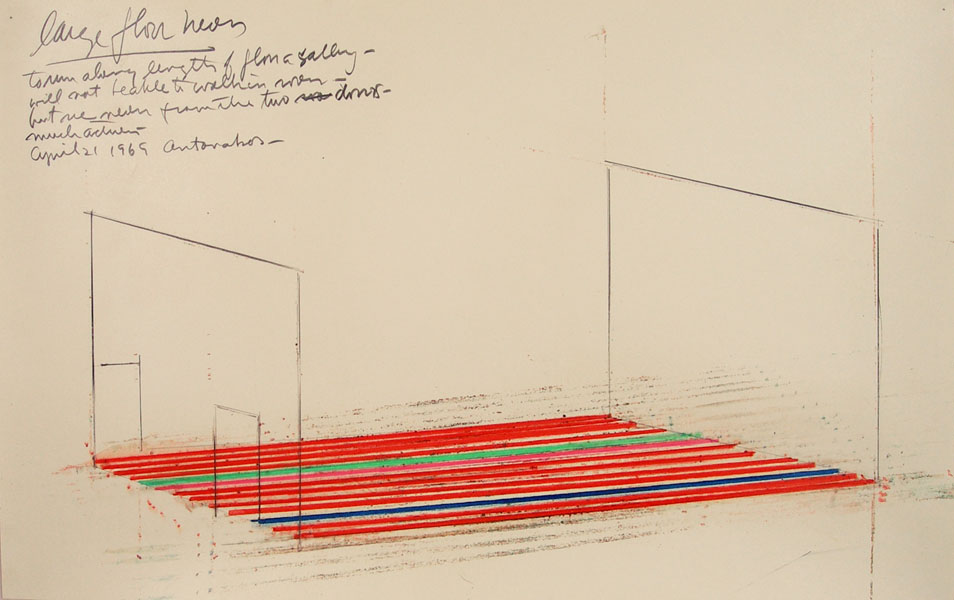 large floor neon
to run along length of floor a gallery –
will not be able to walk in room –
but see neon from the two doors –
much
April 21 1969 Antonakos –